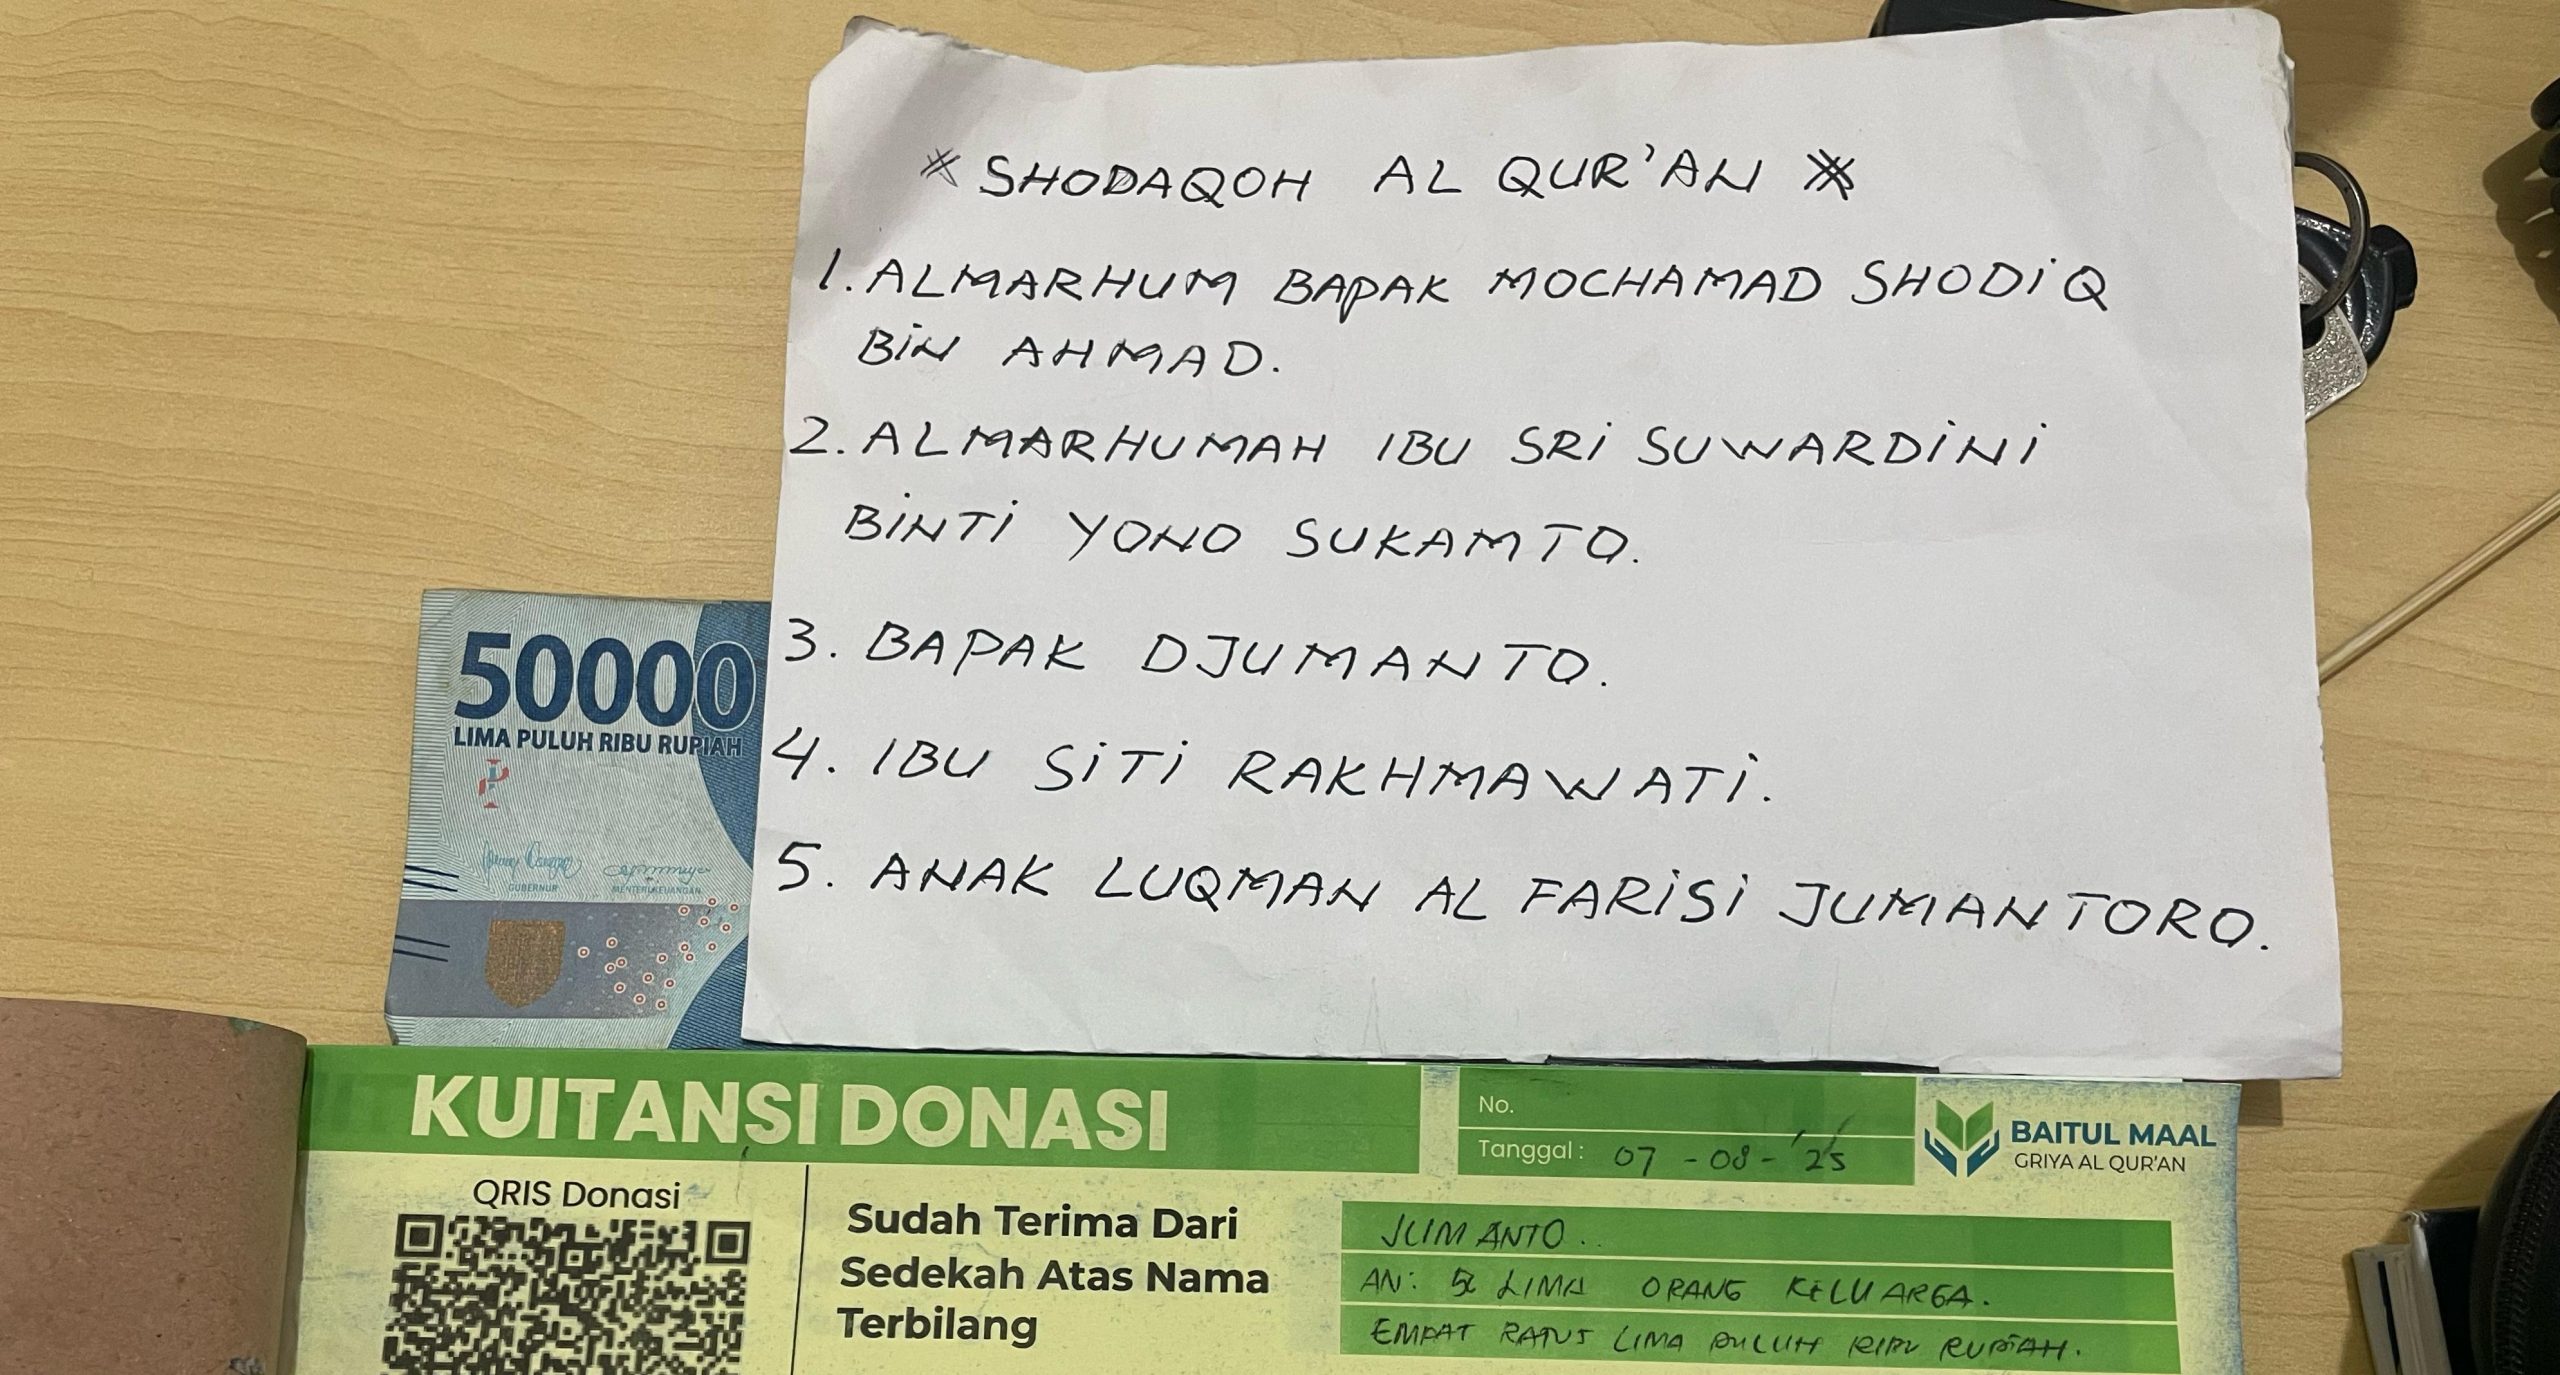 * SHODAQOH AL QUR'AN *
1. ALMARHUM BAPAK MOCHAMAD SHODIQ
BIN AHMAD.
2. ALMARHUMAH IBU SRI SUWARDINI
BINTI YONO SUKAMTO.
3. BAPAK DJUMANTO.
4. IBU SITI RAKHMAWATI.
5. ANAK LUQMAN AL FARISI JUMANTORO.
50000
LIMA PULUH RIBU RUPIAH
GUBERNUR
MENTERI KEUANGAN
KUITANSI DONASI
No.
Tanggal : 07 - 08 - '25
BAITUL MAAL
GRIYA AL QUR'AN
QRIS Donasi
Sudah Terima Dari JUMANTO..
Sedekah Atas Nama AN: LIMA ORANG KELUARGA.
Terbilang EMPAT RATUS LIMA PULUH RIBU RUPIAH.